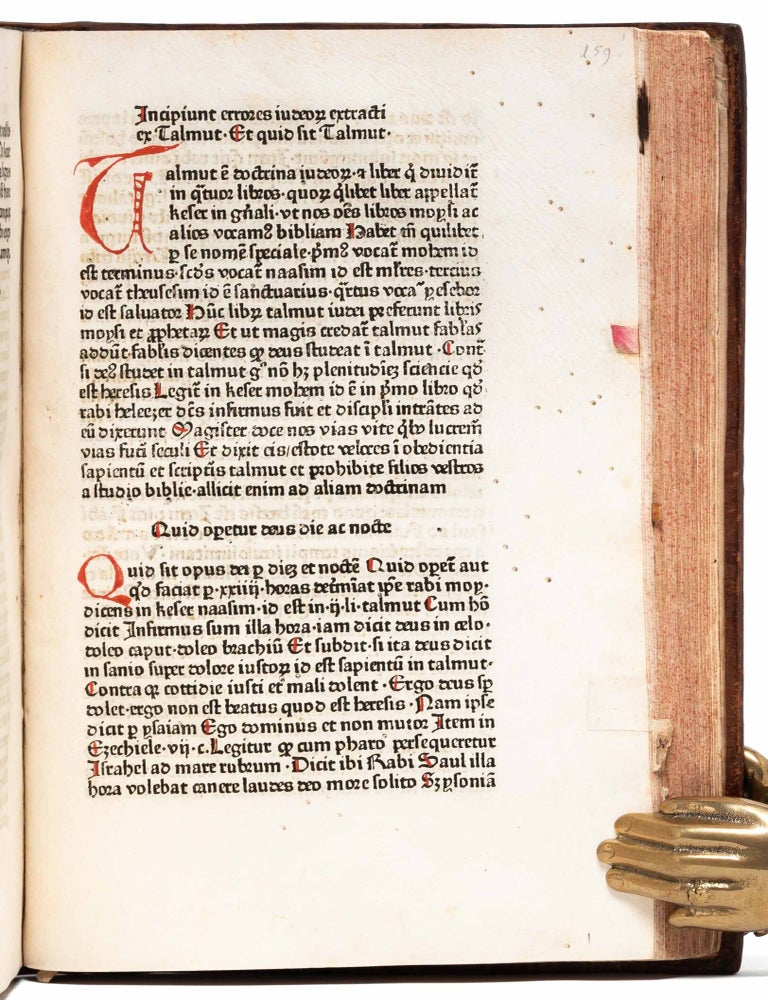 159
Incipiunt errores iudeoꝝ extracti
ex Talmut· Et quid sit Talmut·
Talmut ē doctrina iudeoꝝ·⁊ liber q̄ diuidit̄
in q̄tuor libros·quoꝝ q̄libet liber appellat̄
keser in gn̄ali·vt nos oēs libros moysi ac
alios vocamꝰ bibliam Habet tn̄ quilibet
ꝑ se nomē speciale·p̄mꝰ vocat̄ mohem id
est terminus·scd̄s vocat̄ naasim id est mr̄es·tercius
vocat̄ theusesim id ē sanctuarius·q̄rtus voca͂ yeschor
id est saluator Hūc libꝝ talmut iudei preferunt libris
moysi et ꝓphetaꝝ Et ut magis credant̄ talmut fablās
addūt·fablīs dicentes qꝫ deus studeat ī talmut ·Cont̄
si deꝰ studet in talmut gͦ nō hꝫ plenitudīeꝫ sciencie qd̄
est heresis Legit̄ in keser mohem id ē in p̄mo libro qd̄
rabi heleezer dc̄s infirmus fuit et discipli intrātes ad
eū dixerunt Magister doce nos vias vite q̄bꝫ lucrem̄
vias futi seculi Et dixit eis/estote veloces ī obedientia
sapientū et scriptis talmut et prohibite filios vestros
a studio biblie·allicit enim ad aliam doctrinam
Quid operetur deus die ac nocte
Quid sit opus dei ꝑ dieꝫ et noctē Quid oper̄t aut
qd̄ faciat ꝑ·xxiiij·horas det̄mīat ip̄e rabi moy·
dicens in keser naasim·id est in·ij·li·talmut Cum hō
dicit Infirmus sum illa hora·iam dicit deus in celo·
doleo caput·doleo brachiū Et subdit·si ita deus dicit
in sanio super dolore iustoꝝ id est sapientū in talmut·
Contra qꝫ cottidie iusti et mali dolent ·Ergo deus sp̄
dolet·ergo non est beatus quod est heresis·Nam ipse
dicit ꝑ ysaiam Ego dominus et non mutor Item in
Ezechiele·vij·c.Legitur qꝫ cum pharo persequeretur
Israhel ad mare rubrum·Dicit ibi Rabi Saul illa
hora volebat canere laudes deo more solito Sꝫ ysoniā